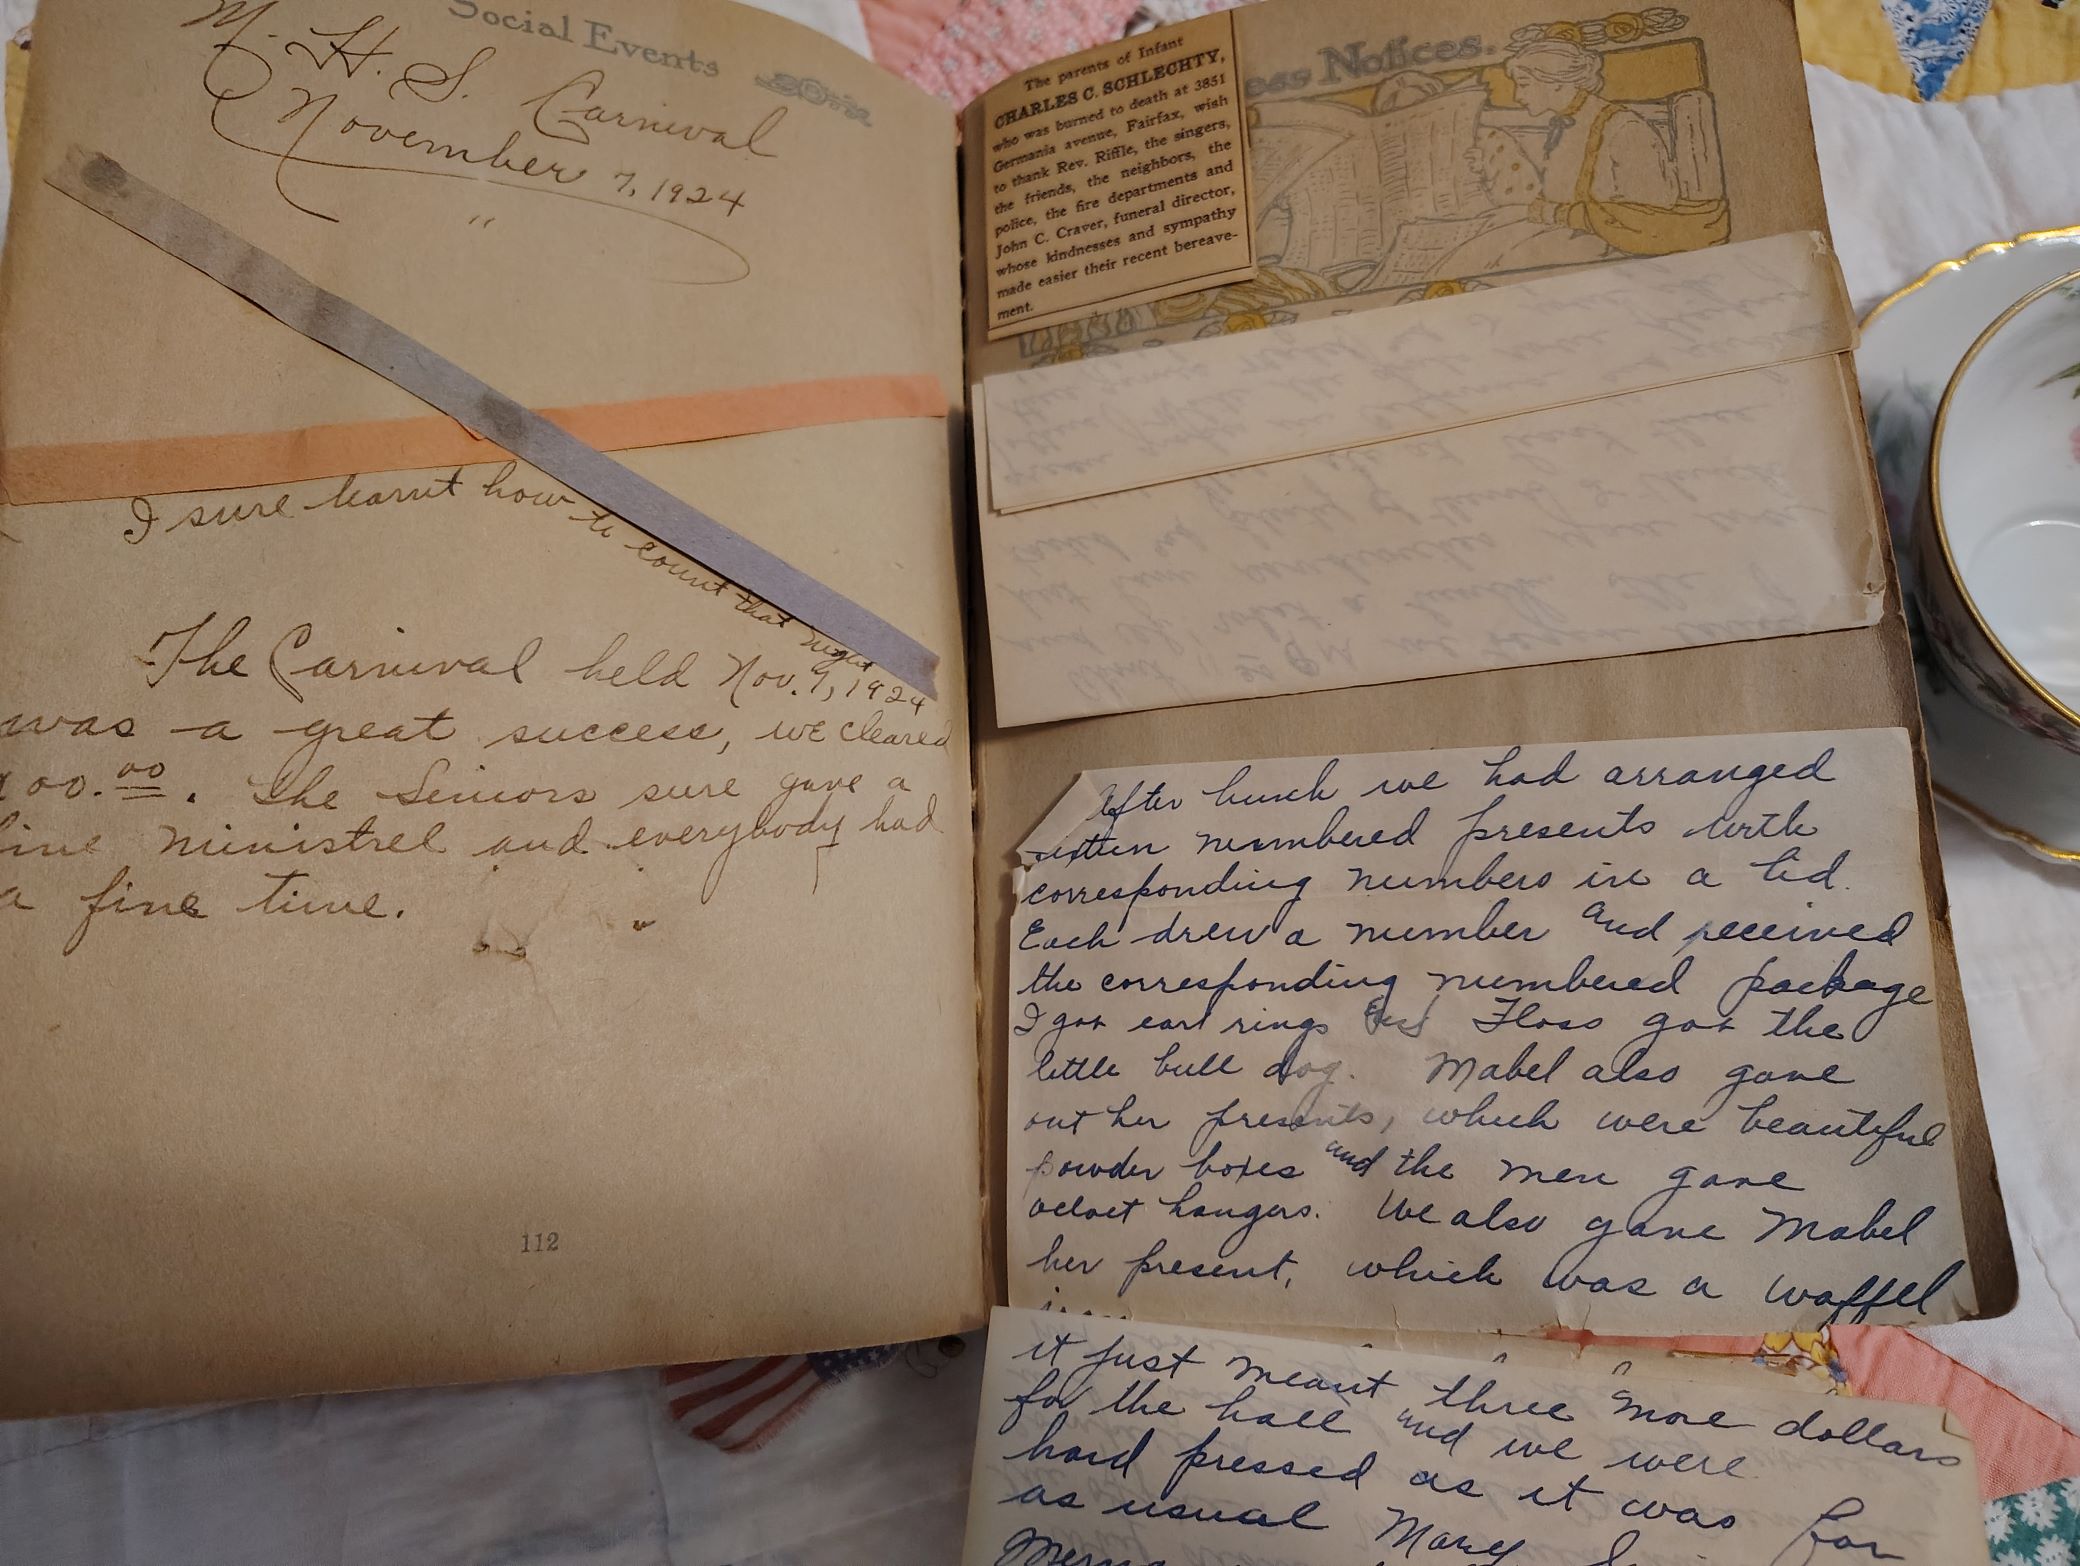 Social Events
M. H. S. Carnival
November 7, 1924
"
I sure learnt how to count that night
The Carnival held Nov. 7, 1924
was a great success, we cleared
00.00. The Seniors sure gave a
fine ministrel and everybody had
a fine time.
112
ess Notices.
The parents of Infant
CHARLES C. SCHLECHTY,
who was burned to death at 3851
Germania avenue, Fairfax, wish
to thank Rev. Riffle, the singers,
the friends, the neighbors, the
police, the fire departments and
John C. Craver, funeral director,
whose kindnesses and sympathy
made easier their recent bereave-
ment.
After lunch we had arranged
numbered presents with
corresponding numbers in a lid.
Each drew a number and received
the corresponding numbered package
I got ear rings Floss got the
little bull dog. Mabel also gave
out her presents, which were beautiful
powder boxes and the men gave
velvet hangers. We also gave Mabel
her present, which was a waffel
it just meant three more dollars
for the hall and we were
hard pressed as it was for
as usual Mary